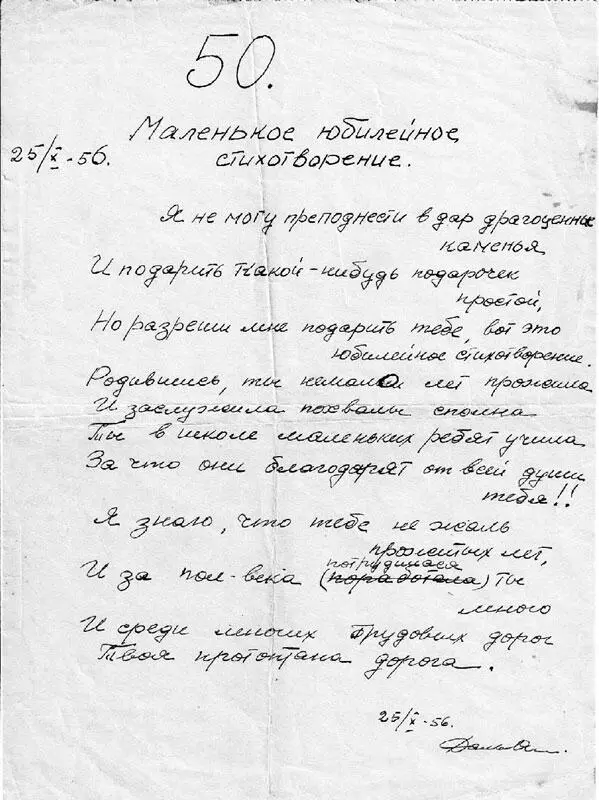 50.
Маленькое юбилейное
25/X-56.
стихотворение.
Я не могу преподнести в дар драгоценные
каменья
И подарить какой-нибудь подарочек
простой,
Но разреши мне подарить тебе, вот это
юбилейное стихотворение.
Родившись, ты немало лет прожила
И заслужила похвалы сполна
Ты в школе маленьких ребят учила
За что они благодарят от всей души
тебя!!
Я знаю, что тебе не жаль
прожитых лет,
потрудилася
И за пол-века (поработала) ты
много
И среди многих трудовых дорог
Твоя протоптана дорога.
25/X-56.